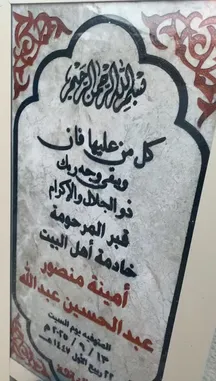 بسم الله الرحمن الرحيم
كل من عليها فان
ويبقى وجه ربك
ذو الجلال والإكرام
قبر المرحومة
خادمة أهل البيت
أمينة منصور
عبدالحسين عبدالله
المتوفيه يوم السبت
١٣ / ٩ / ٢٠٢٥ م
ربيع الأول ١٤٤٧ هـ
الفاتحة